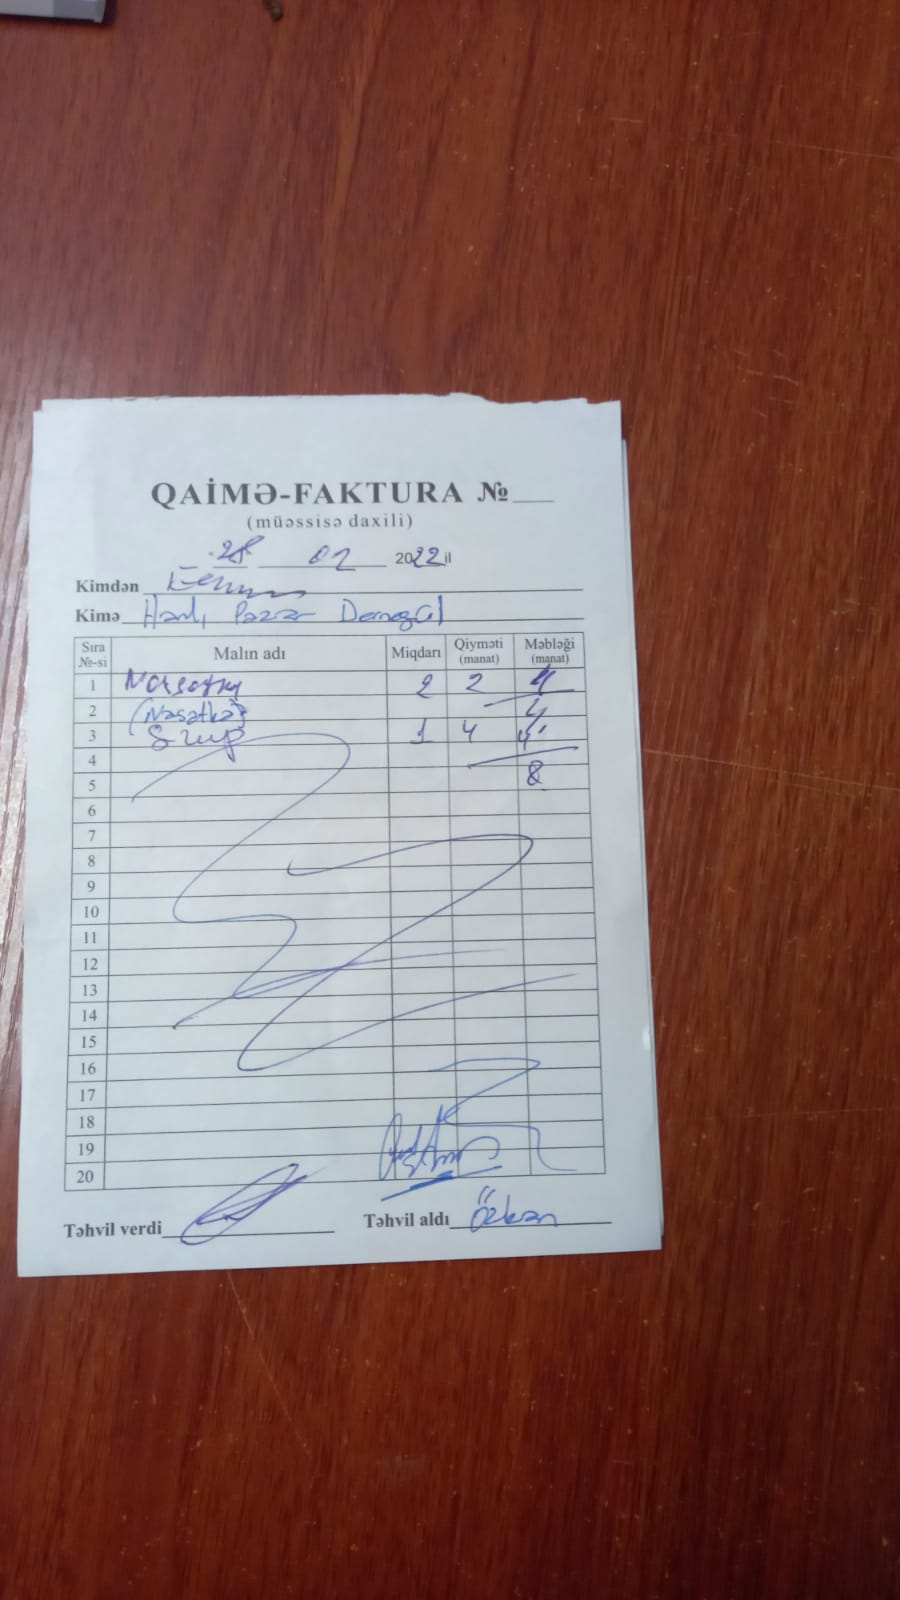 QAİMƏ-FAKTURA № ___
(müəssisə daxili)
" 28 02 2022 il
Kimdən
Kimə Hərdi Pazar Dərnəgül
Sıra №-si Malın adı Miqdarı Qiyməti (manat) Məbləği (manat)
1 Nasatka 2 2 4
2 (Nəsətkə) 4
3 Srup 1 4 4
4
5 8
6
7
8
9
10
11
12
13
14
15
16
17
18
19
20
Təhvil verdi Təhvil aldı Özkan